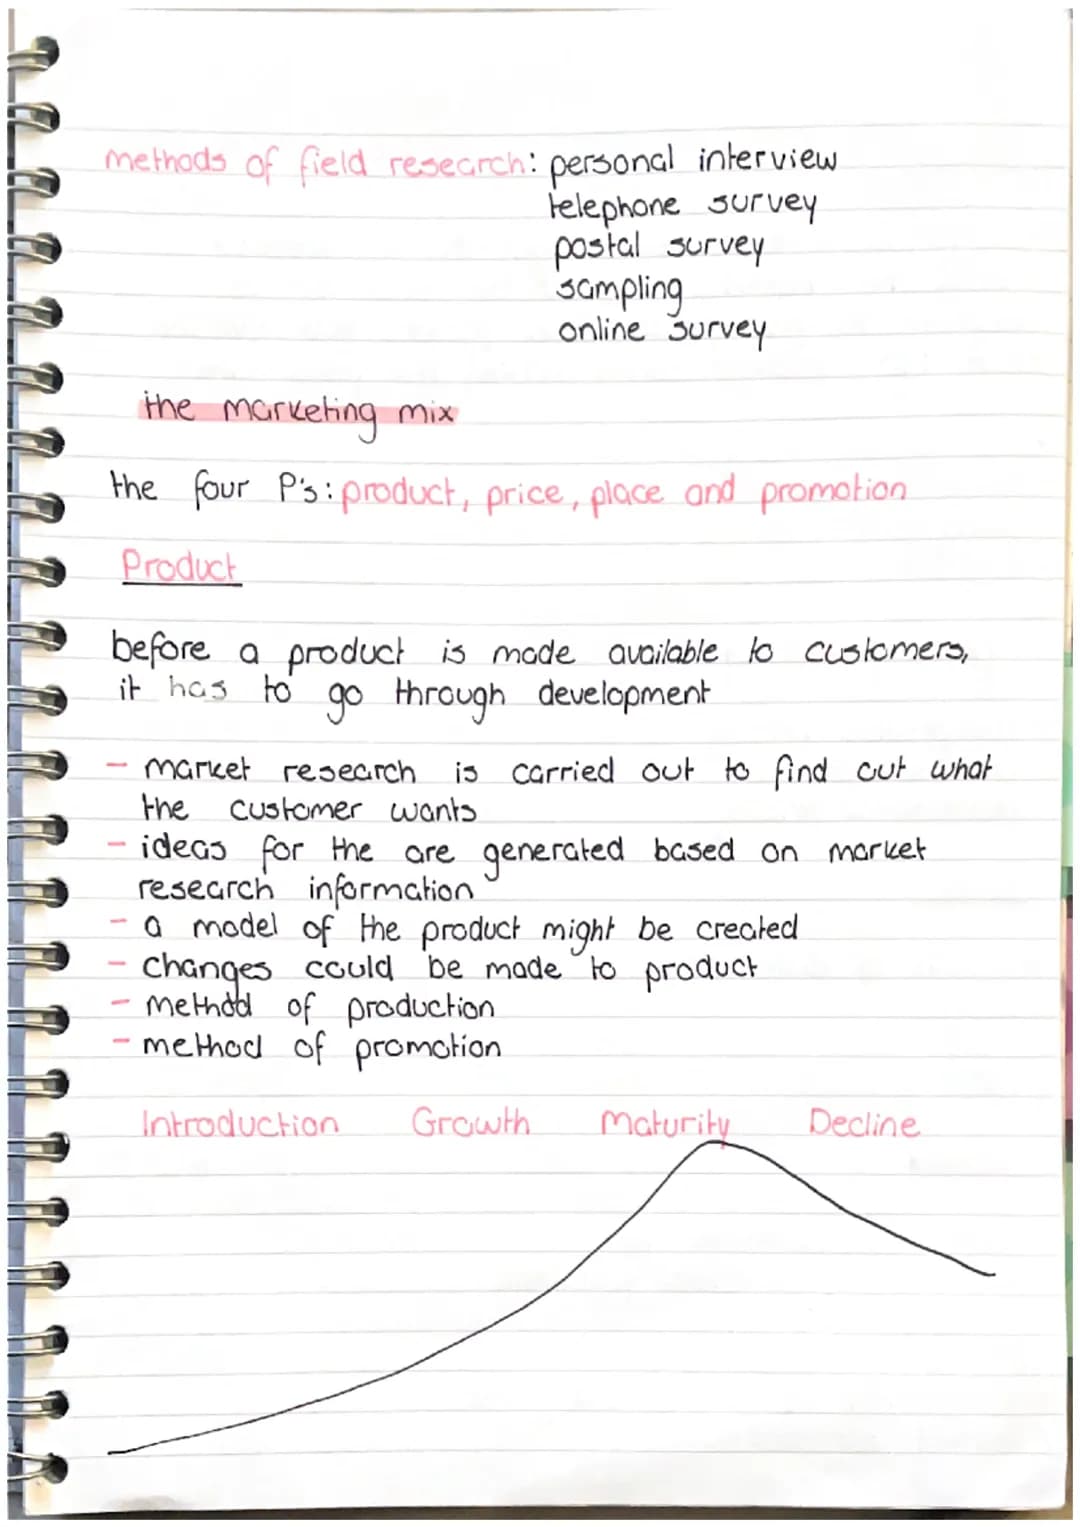 methods of field research: personal interview
telephone survey
postal survey
sampling
online survey
the marketing mix
the four P's: product, price, place and promotion
Product
before a product is made available to customers,
it has to go through development
- market research is carried out to find out what
the customer wants
- ideas for the are generated based on market
research information
- a model of the product might be created
- changes could be made to product
- method of production
- method of promotion
Introduction Growth Maturity Decline